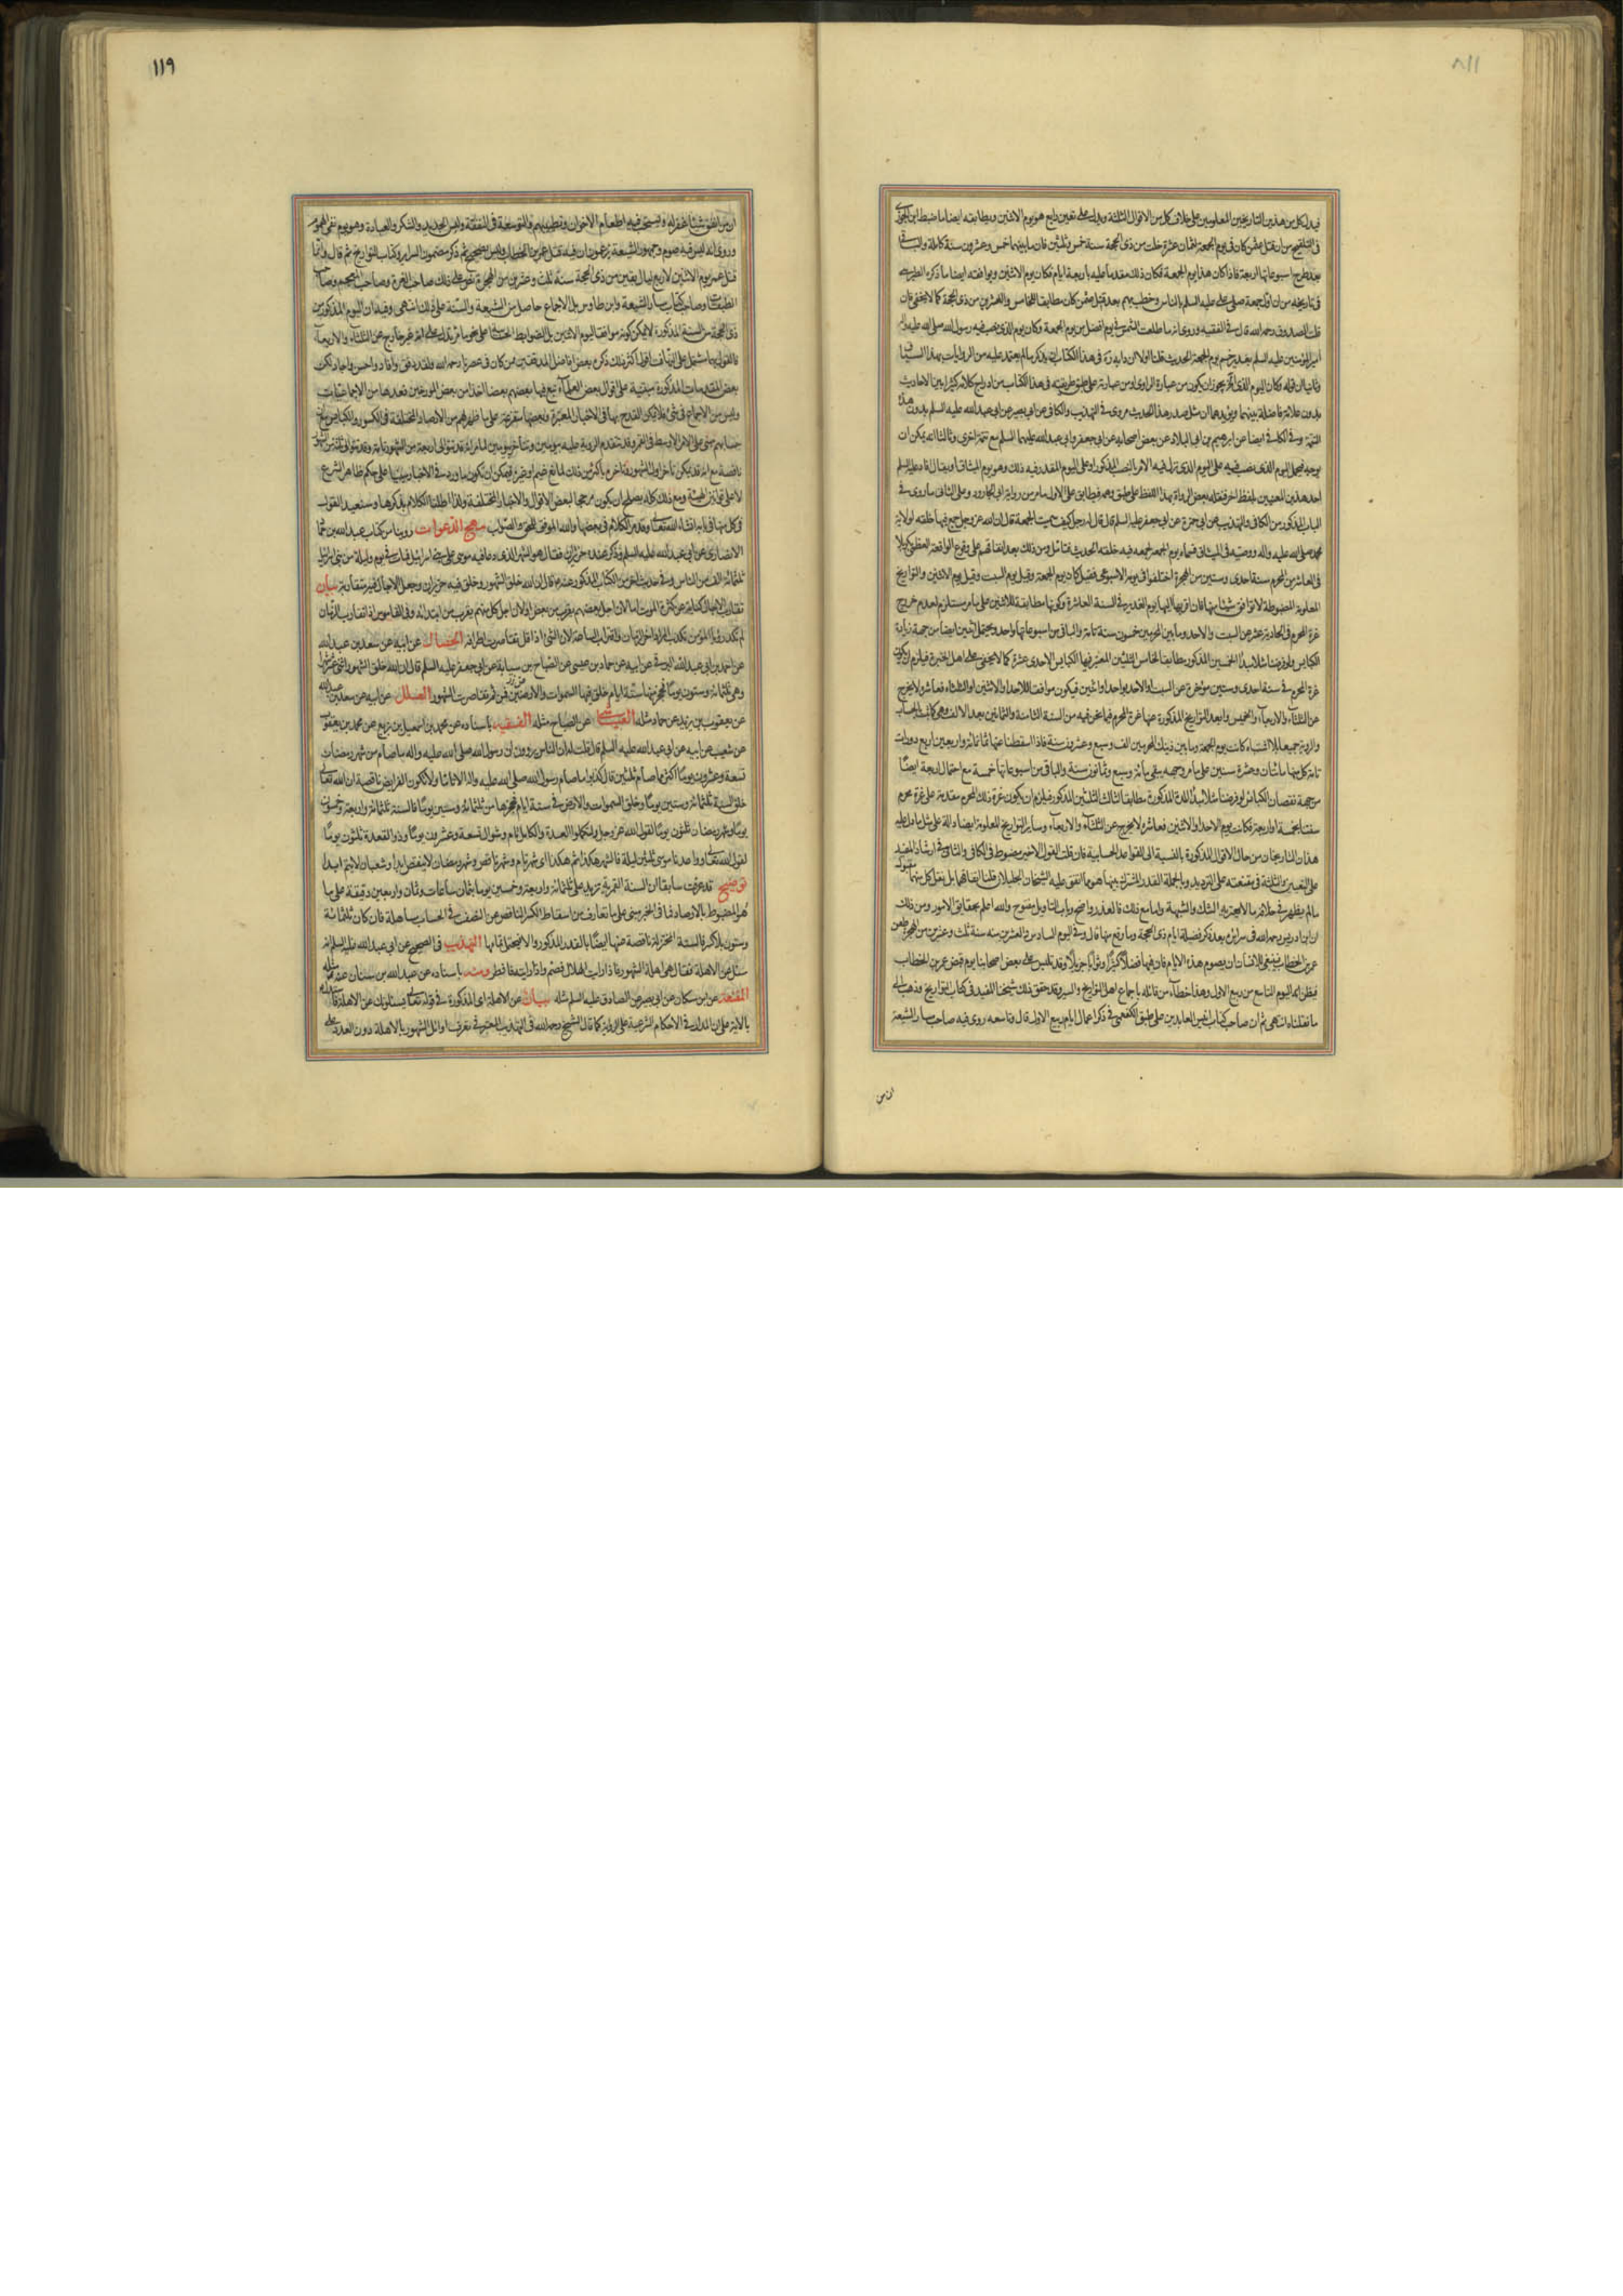 ١١٨
فيدل كل من هذين التاريخين المعلومين على خلاف كل من الاقوال الثلثة ويدل على تعين رابع هو يوم الاثنين ويطابقه ايضا ما ضبط ابن الجوزى
فى التلقيح من ان قتل عثمان كان فى يوم الجمعة لثمان عشرة خلت من ذى الحجة سنة خمس وثلثين فان ما بينهما خمس وعشرون سنة كاملة والباقى
بعد طرح اسبوعاتها اربعة فاذا كان هذا يوم الجمعة فكان ذلك مقدما عليه باربعة ايام فكان يوم الاثنين ويوافقه ايضا ما ذكره الطبرى
فى تاريخه من ان اول جمعة صلى على عليه السلم بالناس وخطب بهم بعد قتل عثمان كان مطابقا للخامس والعشرين من ذى الحجة كما لا يخفى فان
قلت الصدوق رحمه الله قال فى الفقيه وروى انه ما طلعت الشمس فى يوم افضل من يوم الجمعة وكان يوم الذى نصب فيه رسول الله صلى الله عليه واله
امير المؤمنين عليه السلم بغدير خم يوم الجمعة الحديث قلنا اولا ان دابه
وثانيا ان قوله وكان اليوم الذى الخ يجوز ان يكون من عبارة الراوى او من عبارته على طبق طريقته فى هذا الكتاب من ادراج كلامه كثيرا بين الاحاديث
بدون علامة فاصلة بينهما ويؤيدهما ان مثل صدر هذا الحديث مروى فى التهذيب والكافى عن ابى بصير عن ابى عبد الله عليه السلم بدون هذه
التتمة وفى الكافى ايضا عن ابرهيم بن ابى البلاد عن بعض اصحابه عن ابى جعفر وابى عبد الله عليهما السلم مع تتمة اخرى وثالثا انه يمكن ان
احد هذين المعنيين بلفظ اخر فنقله بعض الرواة بهذا اللفظ على طبق وهمه فيطابق على الاول ما مر من رواية ابى الجارود وعلى الثانى ما روى فى
الباب المذكور من الكافى والتهذيب عن ابى حمزة عن ابى جعفر عليه السلم قال قال له رجل كيف سميت الجمعة قال ان الله عز وجل جمع فيها خلقه لولاية
محمد صلى الله عليه واله ووصيه فى الميثاق فسماه يوم الجمعة لجمعه فيه خلقه الحديث فتأمل ومن ذلك بعد اتفاقهم على وقوع الواقعة العظمى بكربلا
فى العاشر من المحرم سنة احدى وستين من الهجرة اختلفوا فى يومه الاسبوعى فقيل كان يوم الجمعة وقيل يوم السبت وقيل يوم الاثنين والتواريخ
المعلومة المضبوطة لا توافق شيئا منها فان اقربها اليها يوم الغدير فى السنة العاشرة وكونها مطابقة للاثنين على ما مر مستلزم لعدم خروج
غرة المحرم فى الحادية عشر عن السبت والاحد وما بين المحرمين خمسون سنة تامة والباقى من اسبوعاتها واحد ويحتمل اثنين ايضا من جهة زيادة
غرة المحرم فى سنة احدى وستين مؤخرة عن السبت او الاحد بواحد او اثنين فيكون موافقا للاحد او الاثنين او الثلثاء فعاشره لا يخرج
عن الثلثاء والاربعاء والخميس وابعد التواريخ المذكورة عنها غرة المحرم فيما نحن فيه من السنة الثامنة والثمانين بعد الالف وهى كانت بالحساب
والرؤية جميعا بلا اشتباه كانت يوم الجمعة وما بين ذينك المحرمين الف وسبع وعشرون سنة فاذا اسقطنا عنها ثمانمائة واربعين اربع دورات
تامة كل منها مائتان وعشرة سنين على ما مر وجهه يبقى مائة وسبع وثمانون سنة والباقى من اسبوعاتها خمسة مع احتمال اربعة ايضا
هذان التاريخان من حال الاقوال المذكورة بالنسبة الى القواعد الحسابية فان قلت القول الاخير مضبوط فى الكافى والثانى فى ارشاد المفيد
ما لم يظهر فى خلافه ما لا يعتريه الشك والشبهة واما مع ذلك فالعذر واضح وباب التاويل مفتوح والله اعلم بحقايق الامور ومن ذلك
ان ابن ادريس رحمه الله فى سرائره بعد ذكر فضيلة ايام ذى الحجة وما وقع منها قال وفى اليوم السادس والعشرين منه سنة ثلث وعشرين من الهجرة طعن
عمر بن الخطاب فينبغى للانسان ان يصوم هذه الايام فان فيها فضلا كثيرا وثوابا جزيلا وقد تلبس على بعض اصحابنا يوم قبض عمر بن الخطاب
فيظن انه اليوم التاسع من ربيع الاول وهذا خطأ من قائله باجماع اهل التواريخ والسير وقد حقق ذلك شيخنا المفيد فى كتاب التواريخ وذهب الى
ما نقلناه انتهى ثم ان صاحب كتاب انيس العابدين على طبق الكفعمى فى ذكر اعمال ايام ربيع الاول قال وتاسعه روى فيه صاحب مسار الشيعة
ان من
١١٩
ان من انفق شيئا غفر له ويستحب فيه اطعام الاخوان وتطييبهم والتوسعة فى النفقة ولبس الجديد والشكر والعبادة وهو يوم نفى الهموم
وروى انه ليس فيه صوم وجمهور الشيعة يزعمون ان فيه قتل عمر بن الخطاب وليس بصحيح ثم ذكر مضمون السرائر وكتاب التواريخ ثم قال وانما
قتل عمر يوم الاثنين لاربع ليال بقين من ذى الحجة سنة ثلث وعشرين من الهجرة نص على ذلك صاحب الغرة وصاحب المعجم وصاحب
الطبقات وصاحب كتاب مسار الشيعة وابن طاوس بل الاجماع حاصل من الشيعة والسنة على ذلك انتهى وفيه ان اليوم المذكور من
ذى الحجة من السنة المذكورة لا يمكن كونه موافقا ليوم الاثنين بل الضوابط الحسابية على نحو ما مر تدل على انه غير خارج عن الثلثاء والاربعاء
بعض المقدمات المذكورة مبتنية على اقوال بعض العلماء تبع فيها بعضهم بعضا اخذا من بعض المورخين فعدها من الاجماعيات
وليس من الاجماع فى شئ فلا يمكن القدح بها فى الاخبار المعتبرة وبعضها متفرعة على ما ظهر لهم من الارصاد المختلفة فى الكسور والكبائس مع
لا على قوانين الهيئة ومع ذلك كله يصلح ان يكون مرجحا لبعض الاقوال والاخبار المختلفة ولذا اطلنا الكلام بذكرها وسنعيد القول
فى كل منها فى بابه انشاء الله تعالى وقد مر الكلام فى بعضها والله الموفق للحق والصواب مهج الدعوات روينا من كتاب عبد الله بن حماد
الانصارى عن ابى عبد الله عليه السلم وذكر عنده حزيران فقال هو الشهر الذى دعا فيه موسى على بنى اسرائيل فمات فى يوم وليلة من بنى اسرائيل
ثلثمائة الف من الناس وفى حديث اخر من الكتاب المذكور عنه قال ان الله خلق الشهور وخلق فيه حزيران وجعل الاجال فيه متقاربة بيان
تقارب الاجال كناية عن كثرة الموت اما لان اجل بعضهم يقرب من بعض او لان اجل كل منهم يقرب من ابتدائه وفى القاموس اذا تقارب الزمان
لم تكد رؤيا المؤمن تكذب المراد اخر الزمان واقتراب الساعة لان الشئ اذا قل تقاصرت اطرافه الخصال عن ابيه عن سعد بن عبد الله
عن احمد بن ابى عبد الله البرقى عن ابيه عن حماد بن عيسى عن الصباح بن سيابة عن ابى جعفر عليه السلم قال ان الله خلق الشهور اثنى عشر شهرا
وهى ثلثمائة وستون يوما فحجز منها ستة ايام خلق فيها السموات والارضين فمن ثم تقاصرت الشهور العلل عن ابيه عن سعد بن عبد الله
عن يعقوب بن يزيد عن حماد مثله العياشى عن الصباح مثله الفقيه باسناده عن محمد بن اسمعيل بن بزيع عن محمد بن يعقوب
عن شعيب عن ابيه عن ابى عبد الله عليه السلم قال قلت له ان الناس يروون ان رسول الله صلى الله عليه واله ما صام من شهر رمضان
تسعة وعشرون يوما اكثر مما صام ثلثين قال كذبوا ما صام رسول الله صلى الله عليه واله الا تاما ولا تكون الفرايض ناقصة ان الله تعالى
خلق السنة ثلثمائة وستين يوما وخلق السموات والارض فى ستة ايام فحجزها من ثلثمائة وستين يوما فالسنة ثلثمائة واربعة وخمسون
يوما وشهر رمضان ثلثون يوما لقول الله عز وجل ولتكملوا العدة والكامل تام وشوال تسعة وعشرون يوما وذو القعدة ثلثون يوما
لقول الله تعالى وواعدنا موسى ثلثين ليلة فالشهر هكذا ثم هكذا اى شهر تام وشهر ناقص وشهر رمضان لا ينقص ابدا وشعبان لا يتم ابدا
توضيح قد عرفت سابقا ان السنة القمرية تزيد على ثلثمائة واربعة وخمسين يوما بثمان ساعات وثمان واربعين دقيقة على ما
هو المضبوط بالارصاد فما فى الخبر مبنى على ما تعارف من اسقاط الكسر الناقص عن النصف فى الحساب مساهلة فان كان ثلثمائة
وستون بلا كسر فالستة المختزلة ناقصة منها ايضا بالقدر المذكور والا فيحتمل تمامها التهذيب فى الصحيح عن ابى عبد الله عليه السلم انه
سئل عن الاهلة فقال هى اهلة الشهور فاذا رايت الهلال فصم واذا رايته فافطر ومنه باسناده عن عبد الله بن سنان عنه مثله
المقنعة عن ابن مسكان عن ابى بصير عن الصادق عليه السلم مثله بيان عن الاهلة اى المذكورة فى قوله تعالى يسئلونك عن الاهلة
بالاية على ان المدار فى الاحكام الشرعية على الرؤية كما قال الشيخ رحمه الله فى التهذيب المعتبر فى تعرف اوائل الشهور بالاهلة دون العدد على